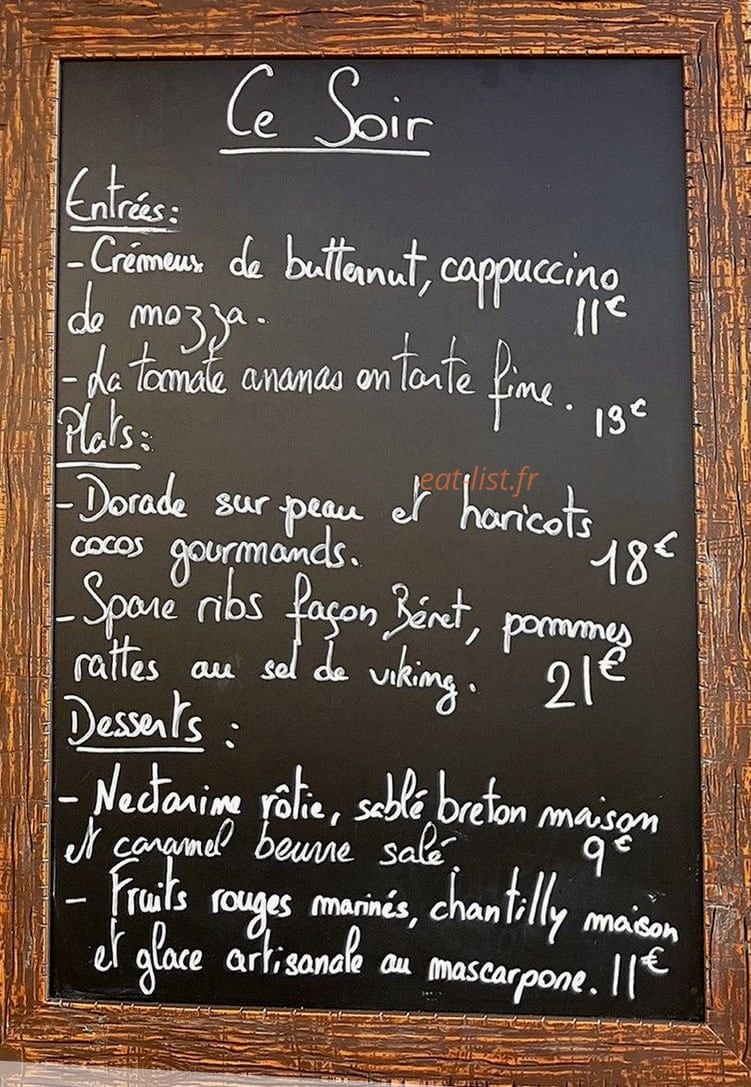 Ce Soir
Entrées:
- Crémeux de butternut, cappuccino
de mozza.
11€
- La tomate ananas en tarte fine.
13€
Plats:
eat-list.fr
- Dorade sur peau et haricots
cocos gourmands.
18€
- Spare ribs façon Béret, pommes
rattes au sel de viking. 21€
Desserts :
- Nectarine rôtie, sablé breton maison
et caramel beurre salé. 9€
- Fruits rouges marinés, chantilly maison
et glace artisanale au mascarpone. 11€